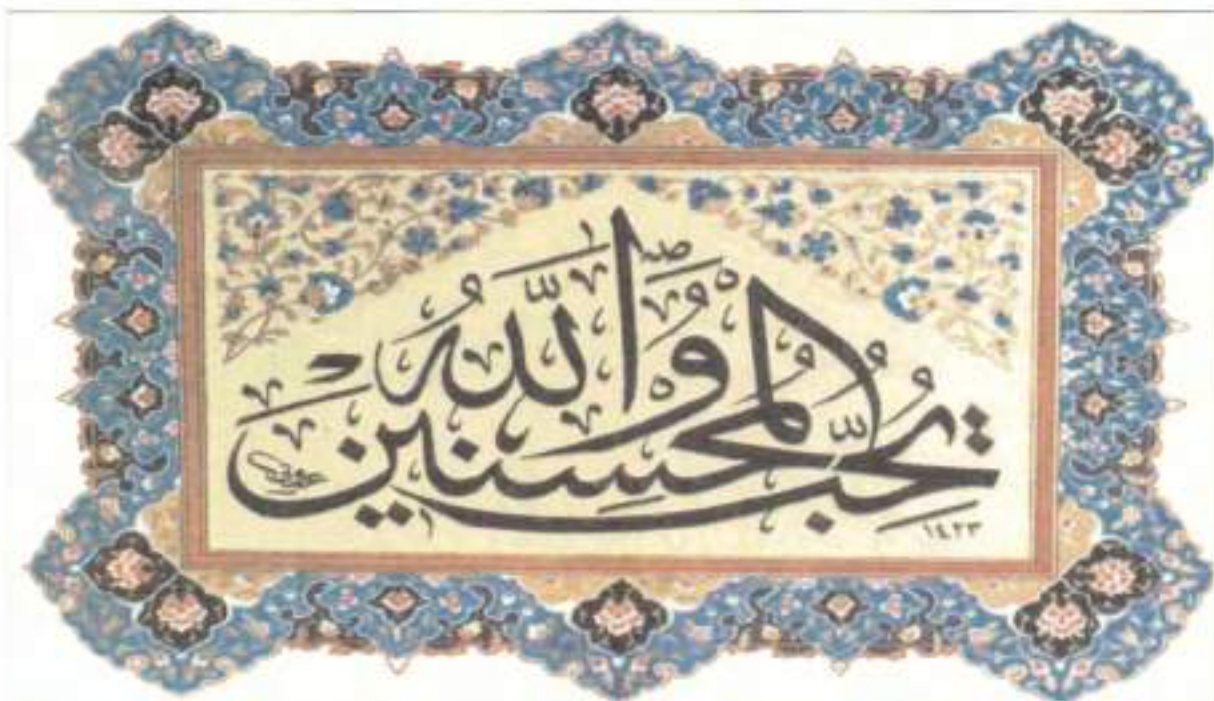 وَاللّٰهُ يُحِبُّ الْمُحْسِنِينَ
١٤٢٣